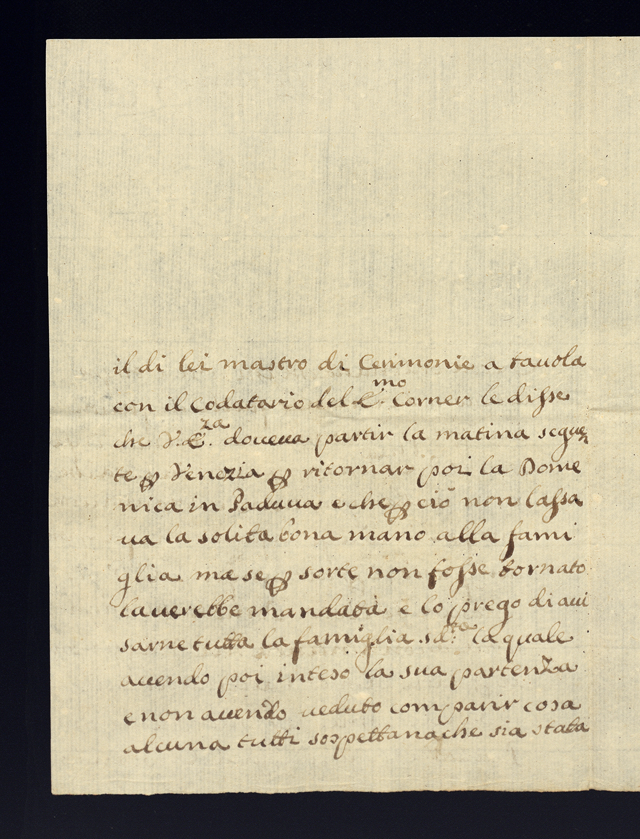 il di lei mastro di Cerimonie a tauola
con il Codatario del E.mo Corner le disse
che V.E.za doueua partir la matina seguen
te p Venezia p ritornar poi la Dome
nica in Padoua e che p ciò non lassa
ua la solita bona mano alla fami
glia ma se p sorte non fosse tornato
l'auerebbe mandata e lo prego di aui
sarne tutta la famiglia sd.ta la quale
auendo poi inteso la sua partenza
e non auendo ueduto comparir cosa
alcuna tutti sospettana che sia stata